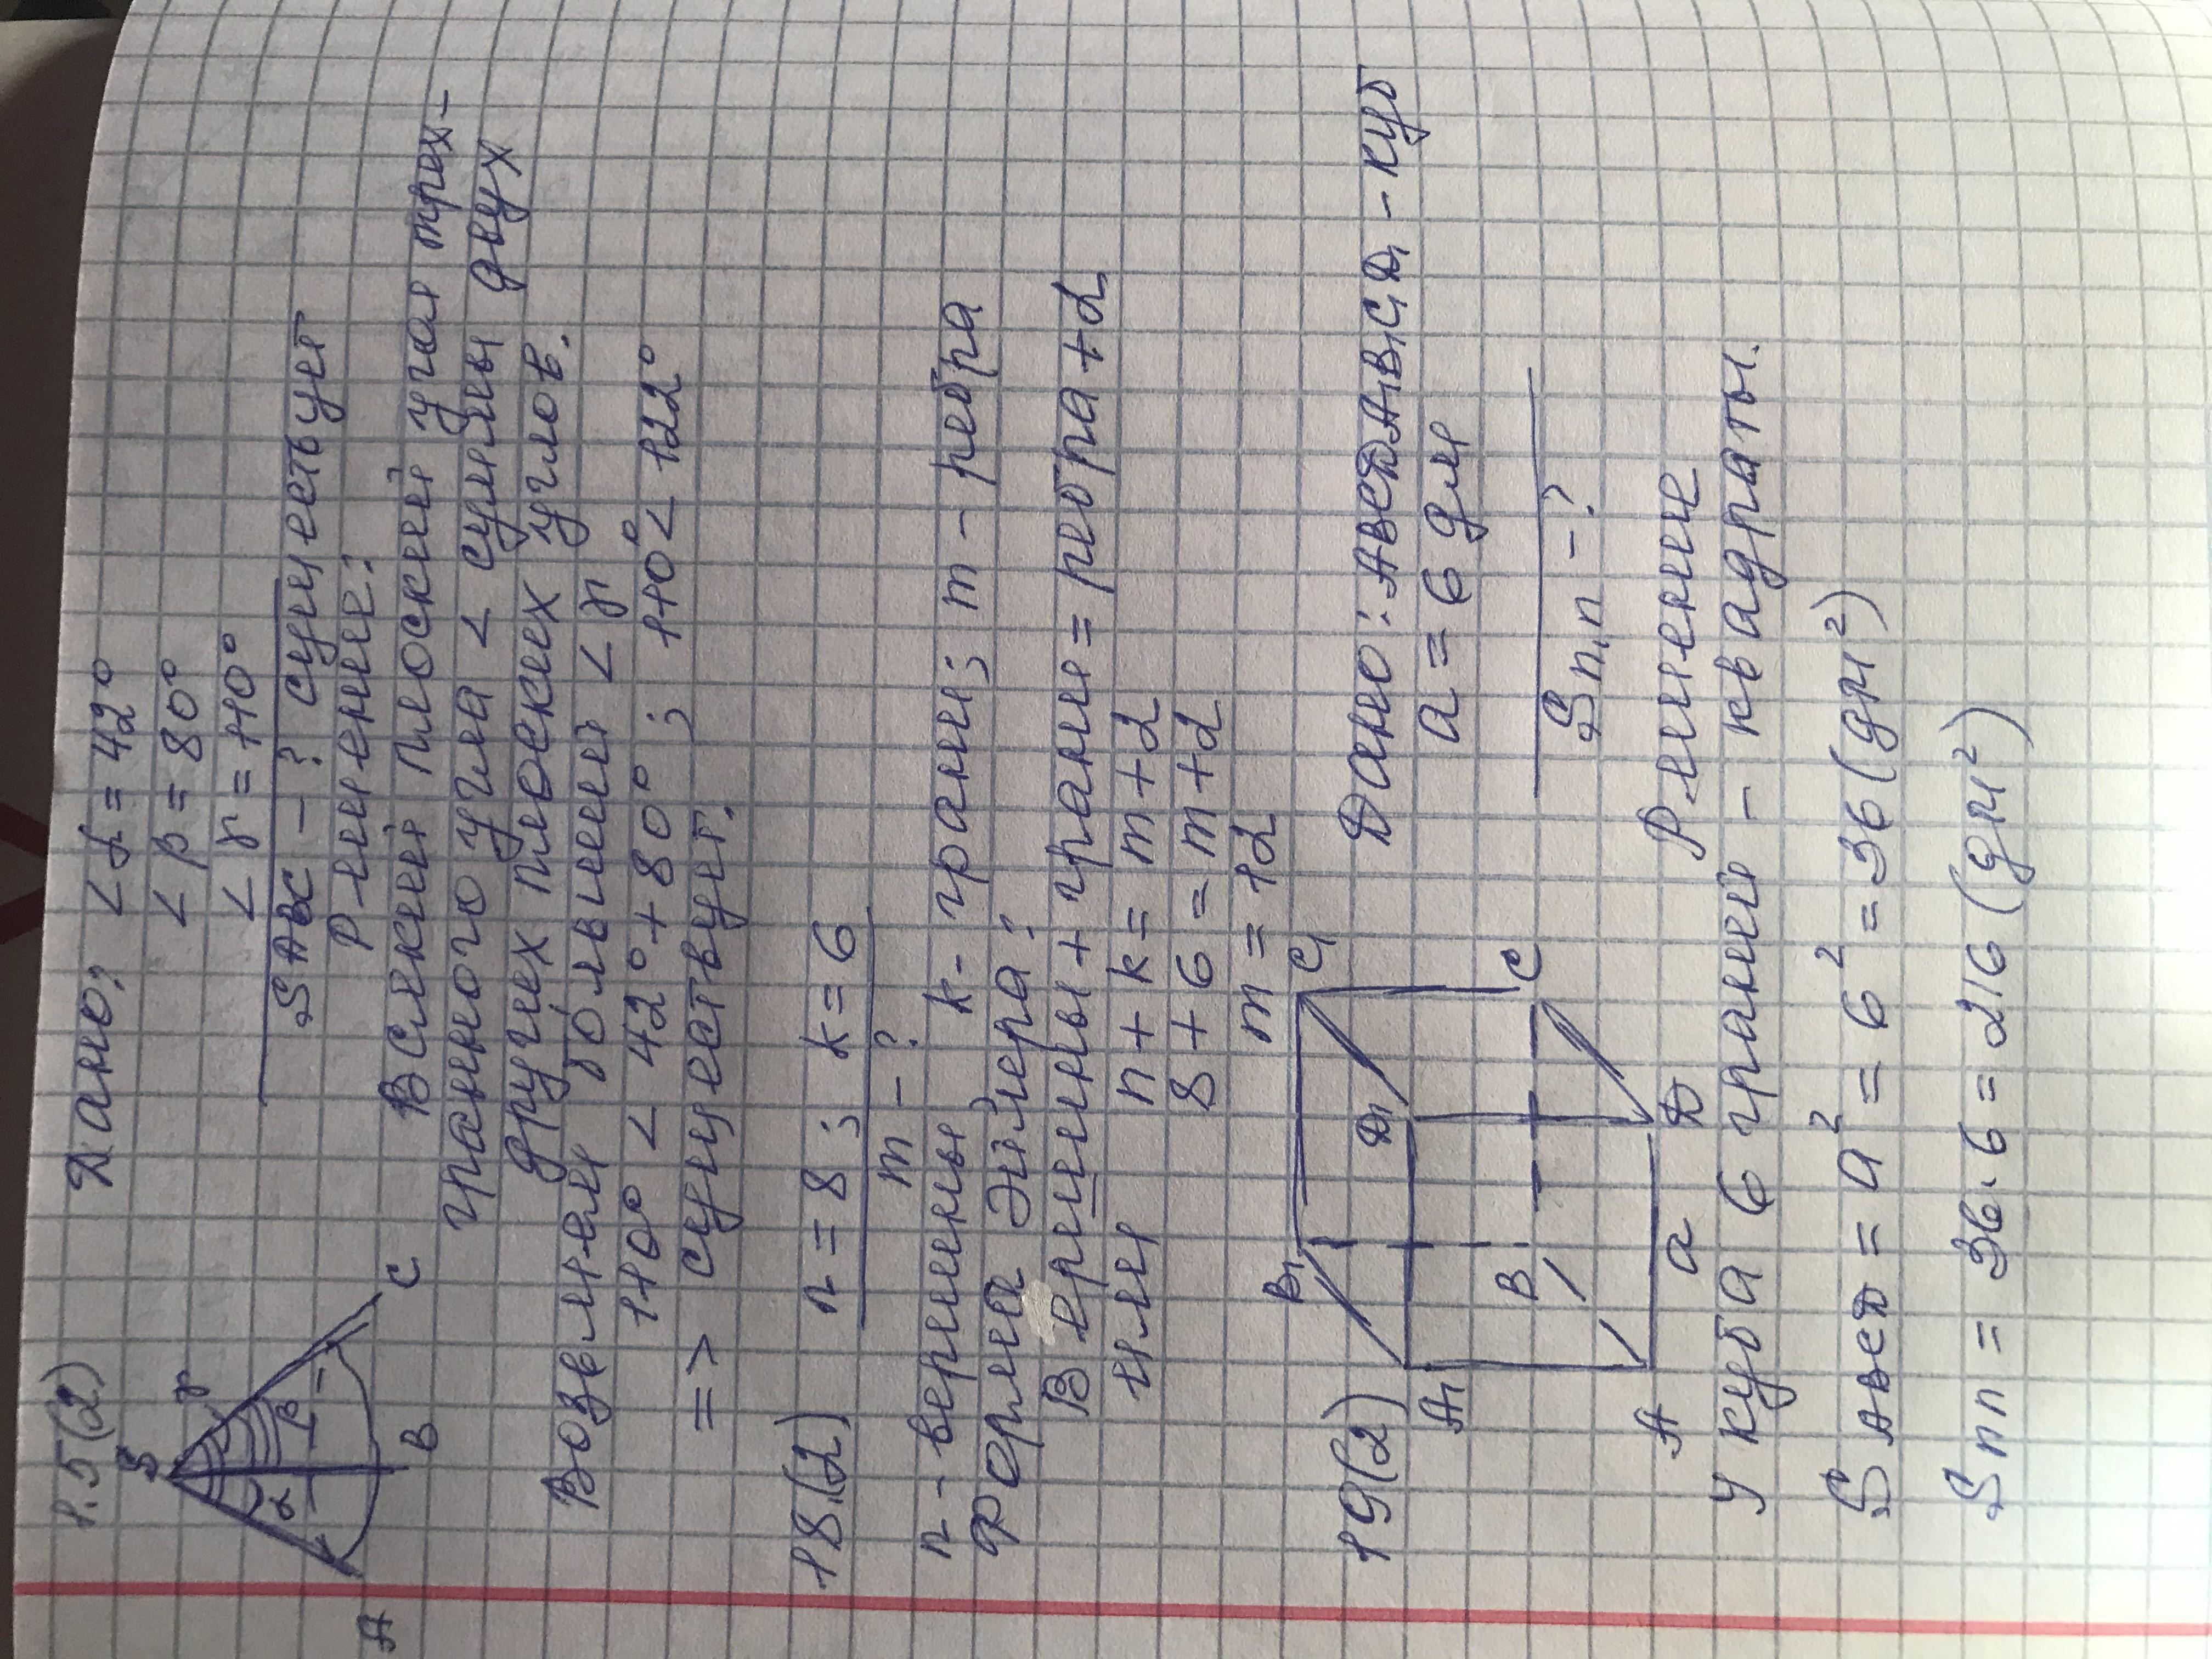 1.5(2)
Дано: ∠α = 42°
∠β = 80°
∠γ = 110°
SABC – ? существует
S
γ
α
β
A
B
C
Решение:
Всякий плоский угол трех-
гранного угла < суммы двух
других плоских углов.
Возьмем больший ∠γ
110° < 42° + 80° ; 110° < 122°
=> существует.
18.(2)
n = 8 ; k = 6
m – ?
n – вершины k – грани; m – ребра
форма Эйлера:
Вершины + грани = ребра + 2
или n + k = m + 2
8 + 6 = m + 2
m = 12
19(2)
B₁
C₁
A₁
D₁
B
C
A
a
D
Дано: ABCDA₁B₁C₁D₁ – куб
a = 6 дм
Sп.п – ?
Решение
У куба 6 граней – квадраты.
SABCD = a² = 6² = 36 (дм²)
Sпп = 36·6 = 216 (дм²)